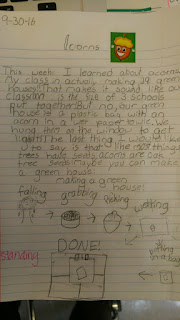 9-30-16
Acorns
This week I learned about acorns.
My class in actually making 19 green
houses! That makes it sound like our
classroom is the size of 3 schools
put together! but no, our green
house is a plastic box with an
acorn in a wet paper towle. We
hung them on the window to get
light! The last thing I would like
to say is that like most things
trees have seeds acorns are oak
tree seeds! Maybe you can make
a green house!
making a green
house!
falling grabbing
waiting
putting
DONE!
standing